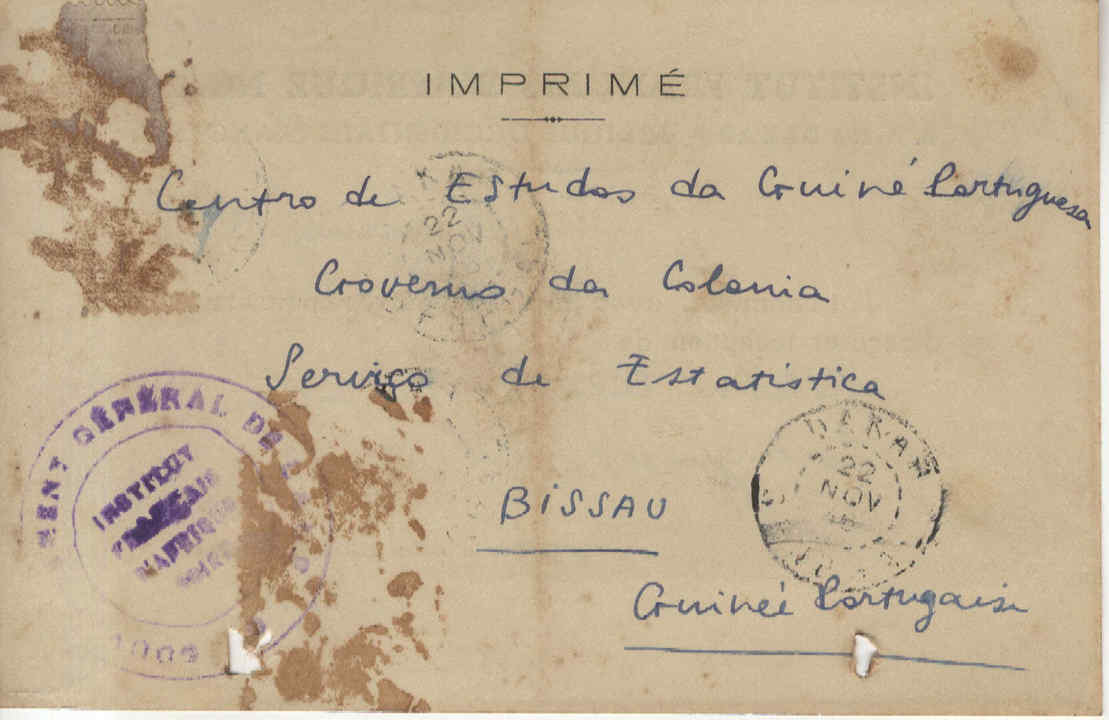 IMPRIMÉ
Centro de Estudos da Guiné Portuguesa
Governo da Colonia
Serviço de Estatistica
BISSAU
Guinée Portugaise
DAKAR
22
NOV
22
NOV
MENT GÉNÉRAL DE
INSTITUT
FRANÇAIS
D'AFRIQUE
GOU